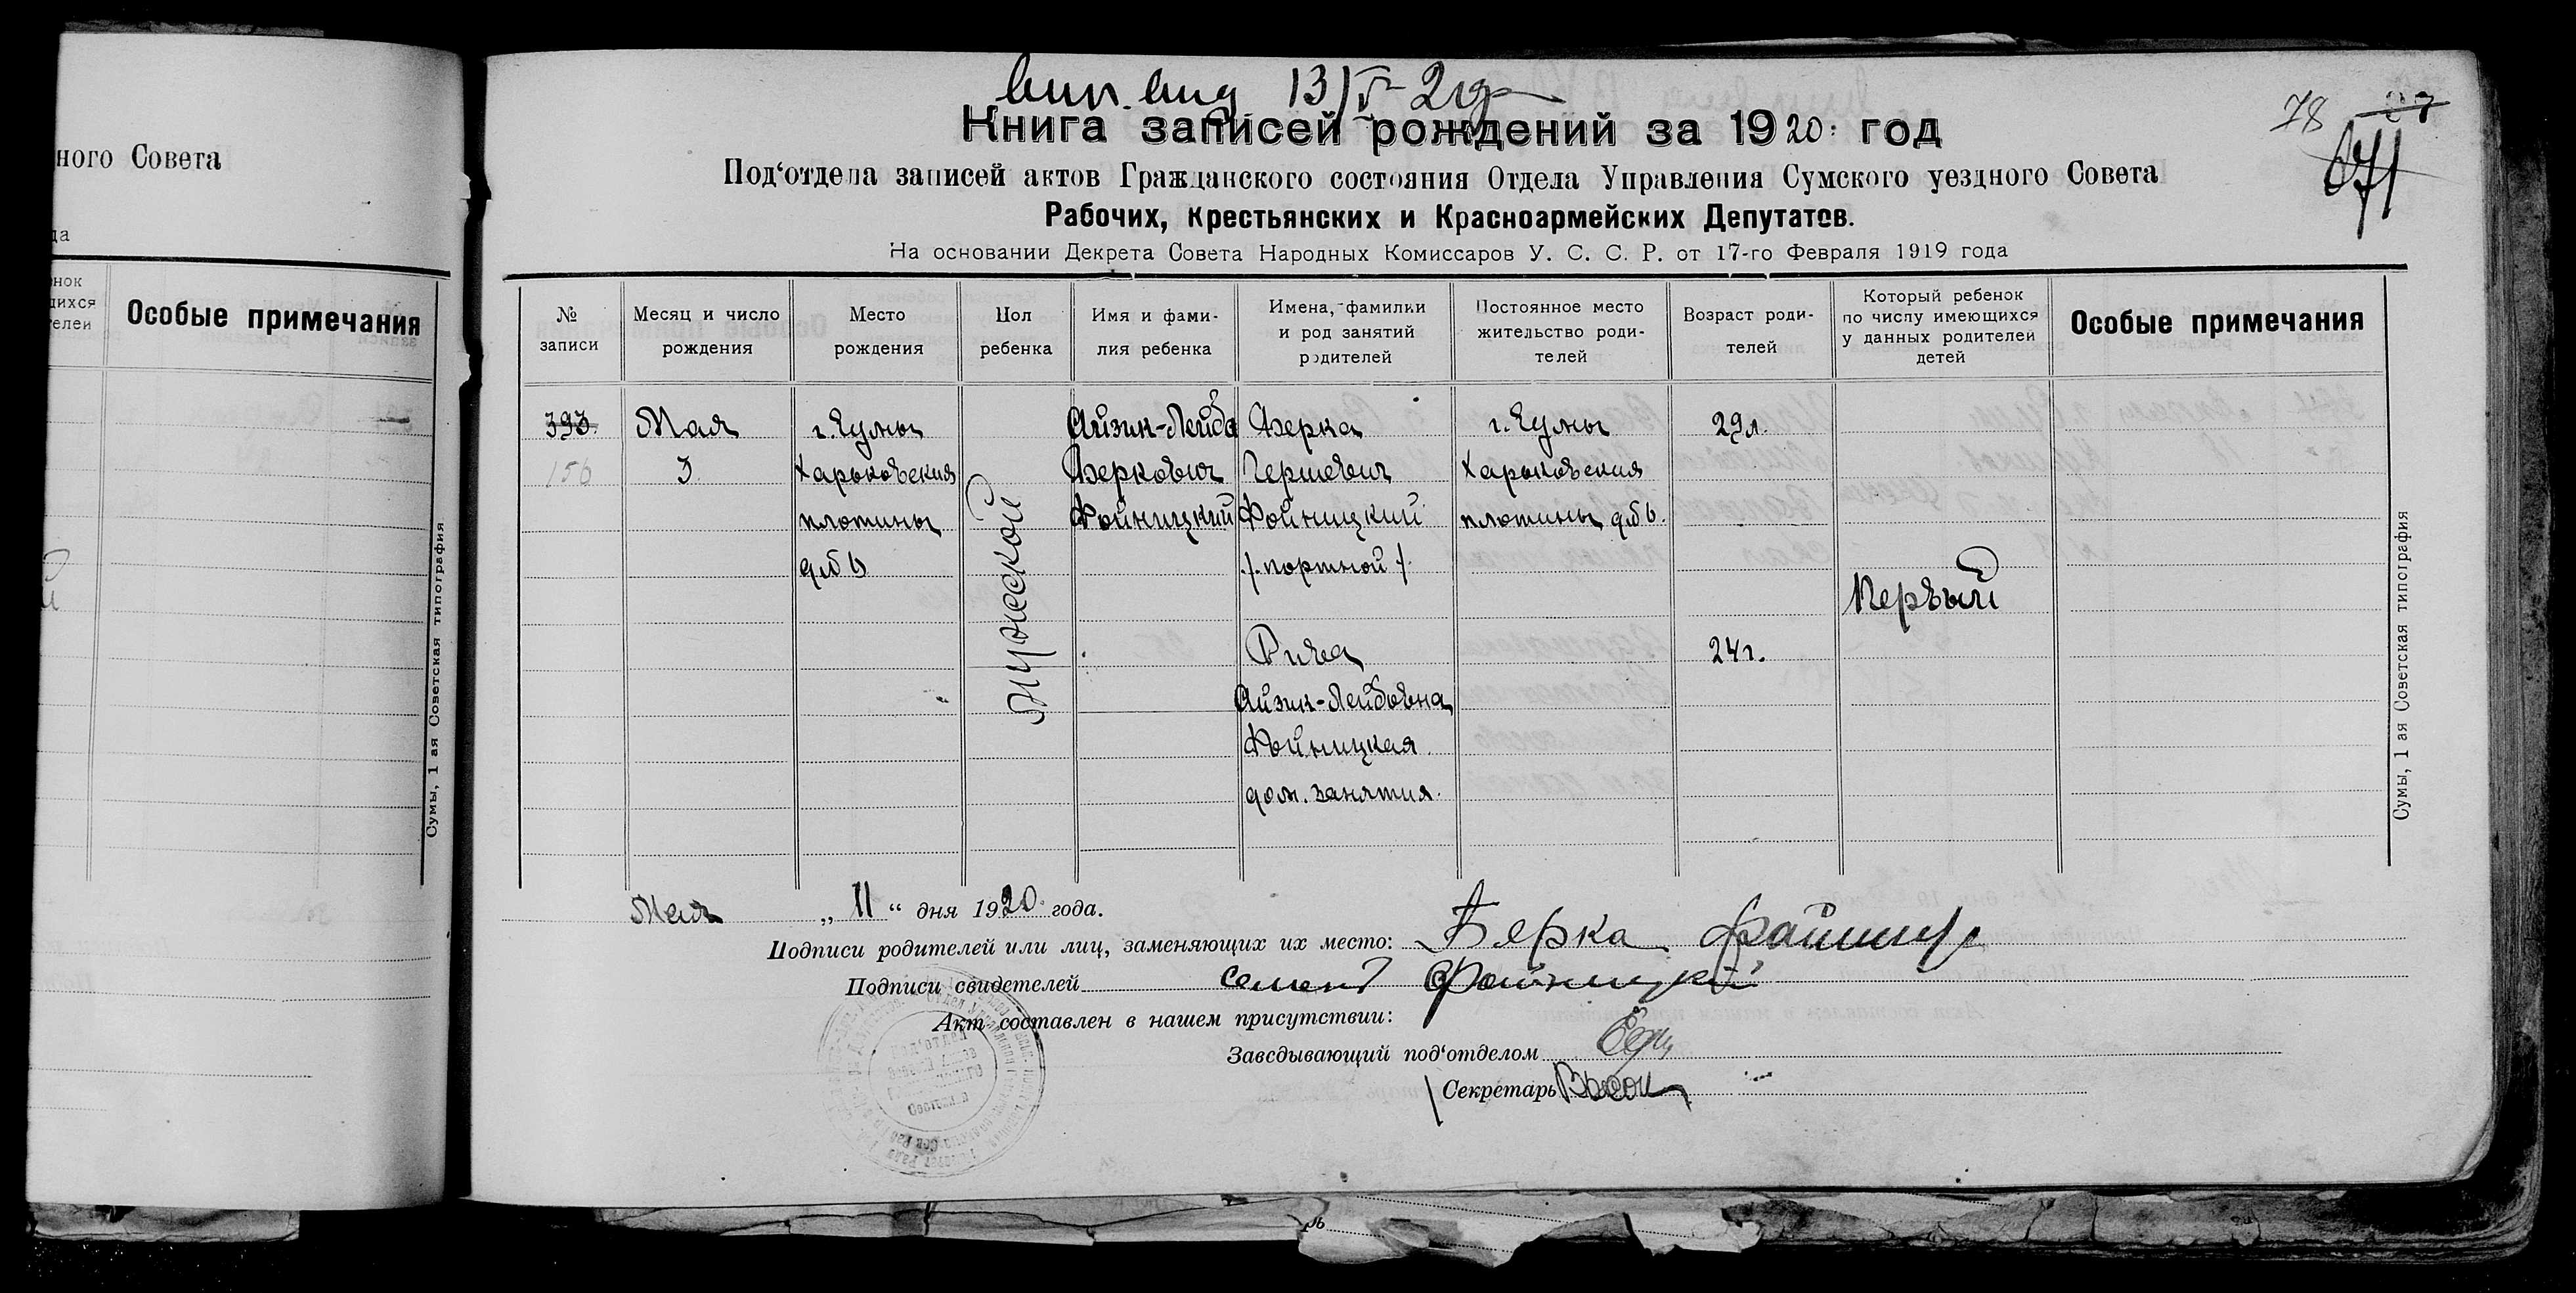 ного Совета
да
енок
щихся
телей
Особые примечания
Сумы, 1 ая Советская типография
вып. вид 13/V-21г
Книга записей рождений за 1920: год
78
Под‘отдела записей актов Гражданского состояния Отдела Управления Сумского уездного Совета
Рабочих, Крестьянских и Красноармейских Депутатов.
На основании Декрета Совета Народных Комиссаров У. С. С. Р. от 17-го Февраля 1919 года
№
записи
Месяц и число
рождения
Место
рождения
Пол
ребенка
Имя и фами-
лия ребенка
Имена, фамилии
и род занятий
родителей
Постоянное место
жительство роди-
телей
Возраст роди-
телей
Который ребенок
по числу имеющихся
у данных родителей
детей
Особые примечания
393.
156
Мая
3
г. Сумы
Харьковския
плотины
д № 6
Мужеской
Айзик-Лейба
Беркович
Фойницкий
Берка
Гершевич
Фойницкий
/. портной /.
Рива
Айзик-Лейбовна
Фойницкая
дом. занятия.
г. Сумы
Харьковския
плотины д № 6.
29 л.
24 г.
Первый
Сумы, 1 ая Советская типография
Мая „ 11 “ дня 1920 года.
Подписи родителей или лиц, заменяющих их место: Берка
Подписи свидетелей Семен Файницкий
Акт составлен в нашем присутствии:
Заведывающий под‘отделом
Секретарь